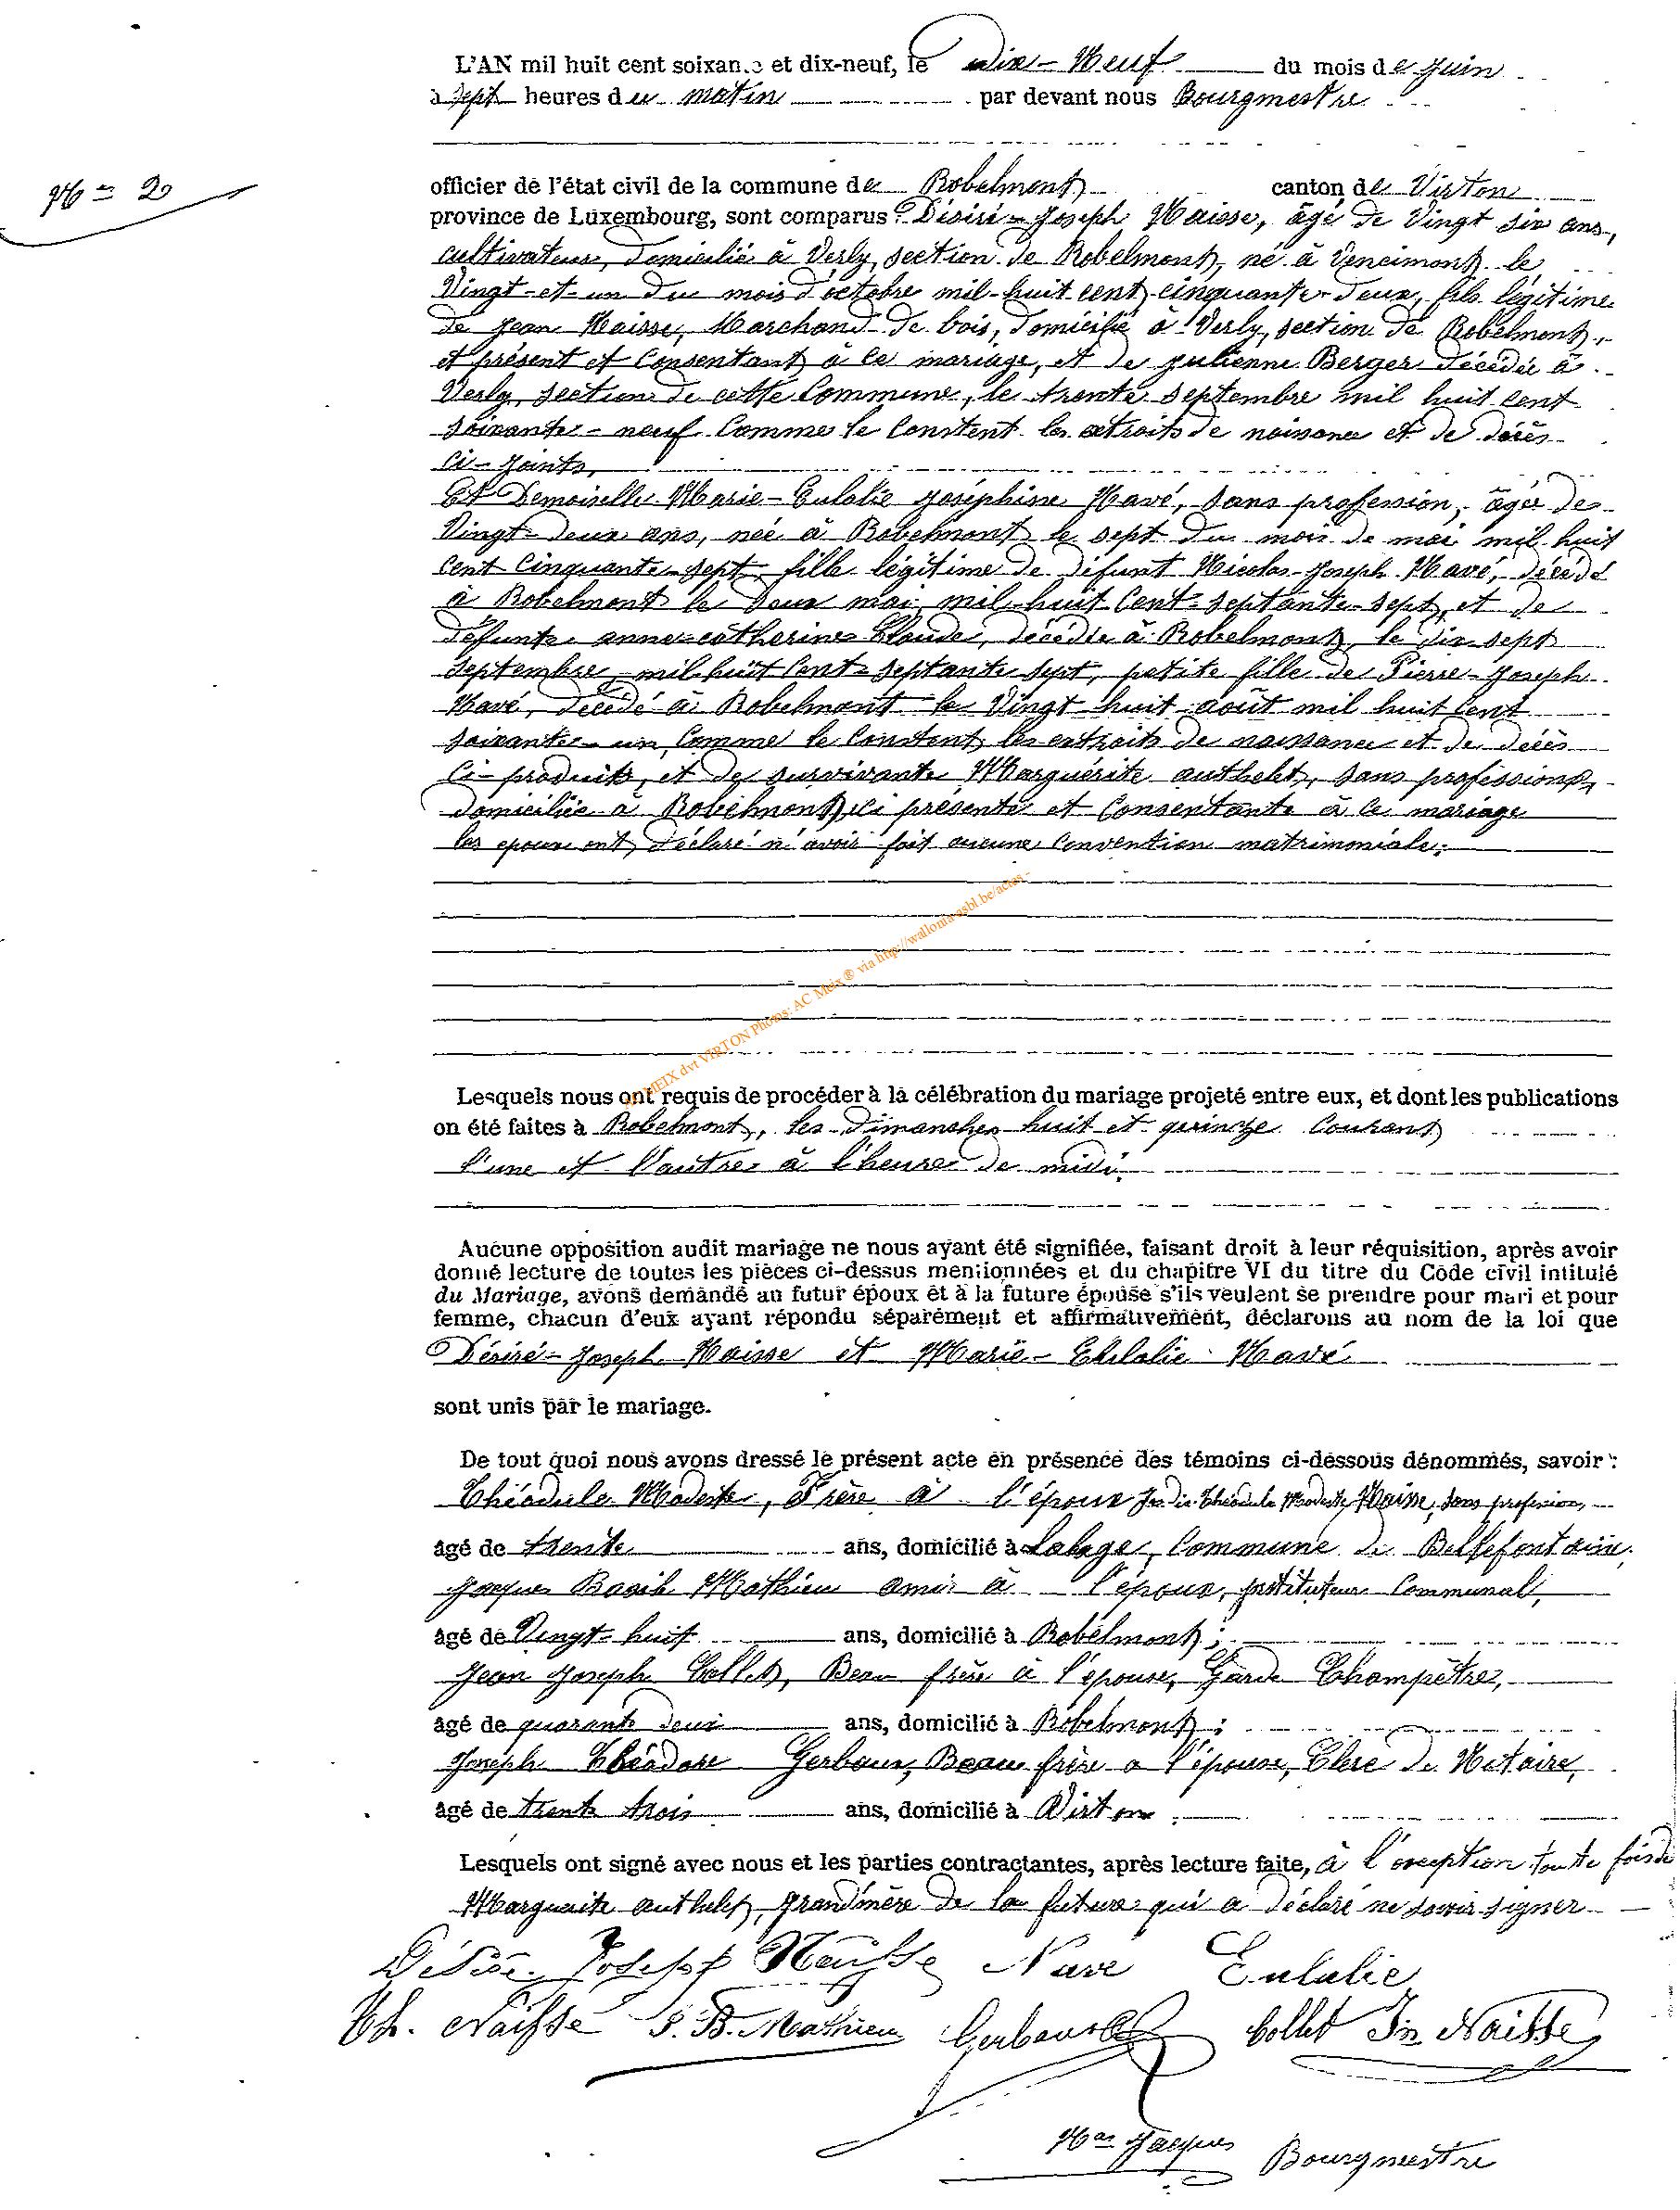 L'AN mil huit cent soixante et dix-neuf, le Dix-Neuf du mois de Juin
à sept heures du matin par devant nous Bourgmestre
N° 2
officier de l'état civil de la commune de Robelmont canton de Virton
province de Luxembourg, sont comparus : Désiré-Joseph Naisse, âgé de Vingt six ans,
cultivateur, domicilié à Verly, section de Robelmont, né à Vencimont le
Vingt-et-un du mois d'octobre mil-huit-cent cinquante-deux, fils légitime
de Jean Naisse, Marchand de bois, domicilié à Verly, section de Robelmont,
et présent et Consentant à ce mariage, et de Julienne Berger décédée à
Verly, section de cette Commune, le trente septembre mil huit cent
soixante-neuf Comme le Constent les extraits de naissance et de décès
Ci-joints,
Et Demoiselle Marie-Eulalie Joséphine Navé, sans profession, âgée de
Vingt-deux ans, née à Robelmont le sept du mois de mai mil huit
cent Cinquante-sept, fille légitime de défunt Nicolas-Joseph Navé, décédé
à Robelmont le deux mai mil-huit-Cent-septante-sept, et de
défunte anne-catherine Claude, décédée à Robelmont, le dix sept
septembre mil huit Cent-septante sept, petite fille de Pierre-Joseph
Navé, décédé à Robelmont le Vingt huit août mil huit Cent
soixante-un, Comme le Constent les extraits de naissance et de décès
Ci-produits, et de survivante Marguérite authelet, sans profession,
domiciliée à Robelmont, ci présente et Consentante à ce mariage
les epoux ont déclaré n'avoir fait aucune Convention matrimoniale.
MEIX dvt VIRTON Photos: AC Meix ® via http://wallonia-asbl.be/actes -
Lesquels nous ont requis de procéder à la célébration du mariage projeté entre eux, et dont les publications
on été faites à Robelmont, les dimanches huit et quinze Courant
l'une et l'autre à l'heure de midi.
Aucune opposition audit mariage ne nous ayant été signifiée, faisant droit à leur réquisition, après avoir
donné lecture de toutes les pièces ci-dessus mentionnées et du chapitre VI du titre du Code civil intitulé
du Mariage, avons demandé au futur époux et à la future épouse s'ils veulent se prendre pour mari et pour
femme, chacun d'eux ayant répondu séparément et affirmativement, déclarons au nom de la loi que
Désiré-Joseph Naisse et Marie-Eulalie Navé
sont unis par le mariage.
De tout quoi nous avons dressé le présent acte en présence des témoins ci-dessous dénommés, savoir :
Théodule Modeste, Frère à l'époux Théodule Modeste Naisse, sans profession,
âgé de trente ans, domicilié à Lahage, Commune de Bellefontaine.
Jacques Basile Mathieu ami à l'époux, instituteur Communal,
âgé de Vingt-huit ans, domicilié à Robelmont ;
Jean Joseph Collet, Beau frère à l'épouse, Garde Champêtre,
âgé de quarante deux ans, domicilié à Robelmont ;
Joseph Théodore Gerbaux, Beau frère a l'épouse, Clerc de Notaire,
âgé de trente trois ans, domicilié à Virton.
Lesquels ont signé avec nous et les parties contractantes, après lecture faite, à l'exception toute fois de
Marguerite authelet, grand'mère de la future qui a déclaré ne savoir signer
Désiré Joseph Naisse Navé Eulalie
Th. Naisse J. B. Mathieu Gerbaux Collet Jn Naisse
Jacques Bourgmestre